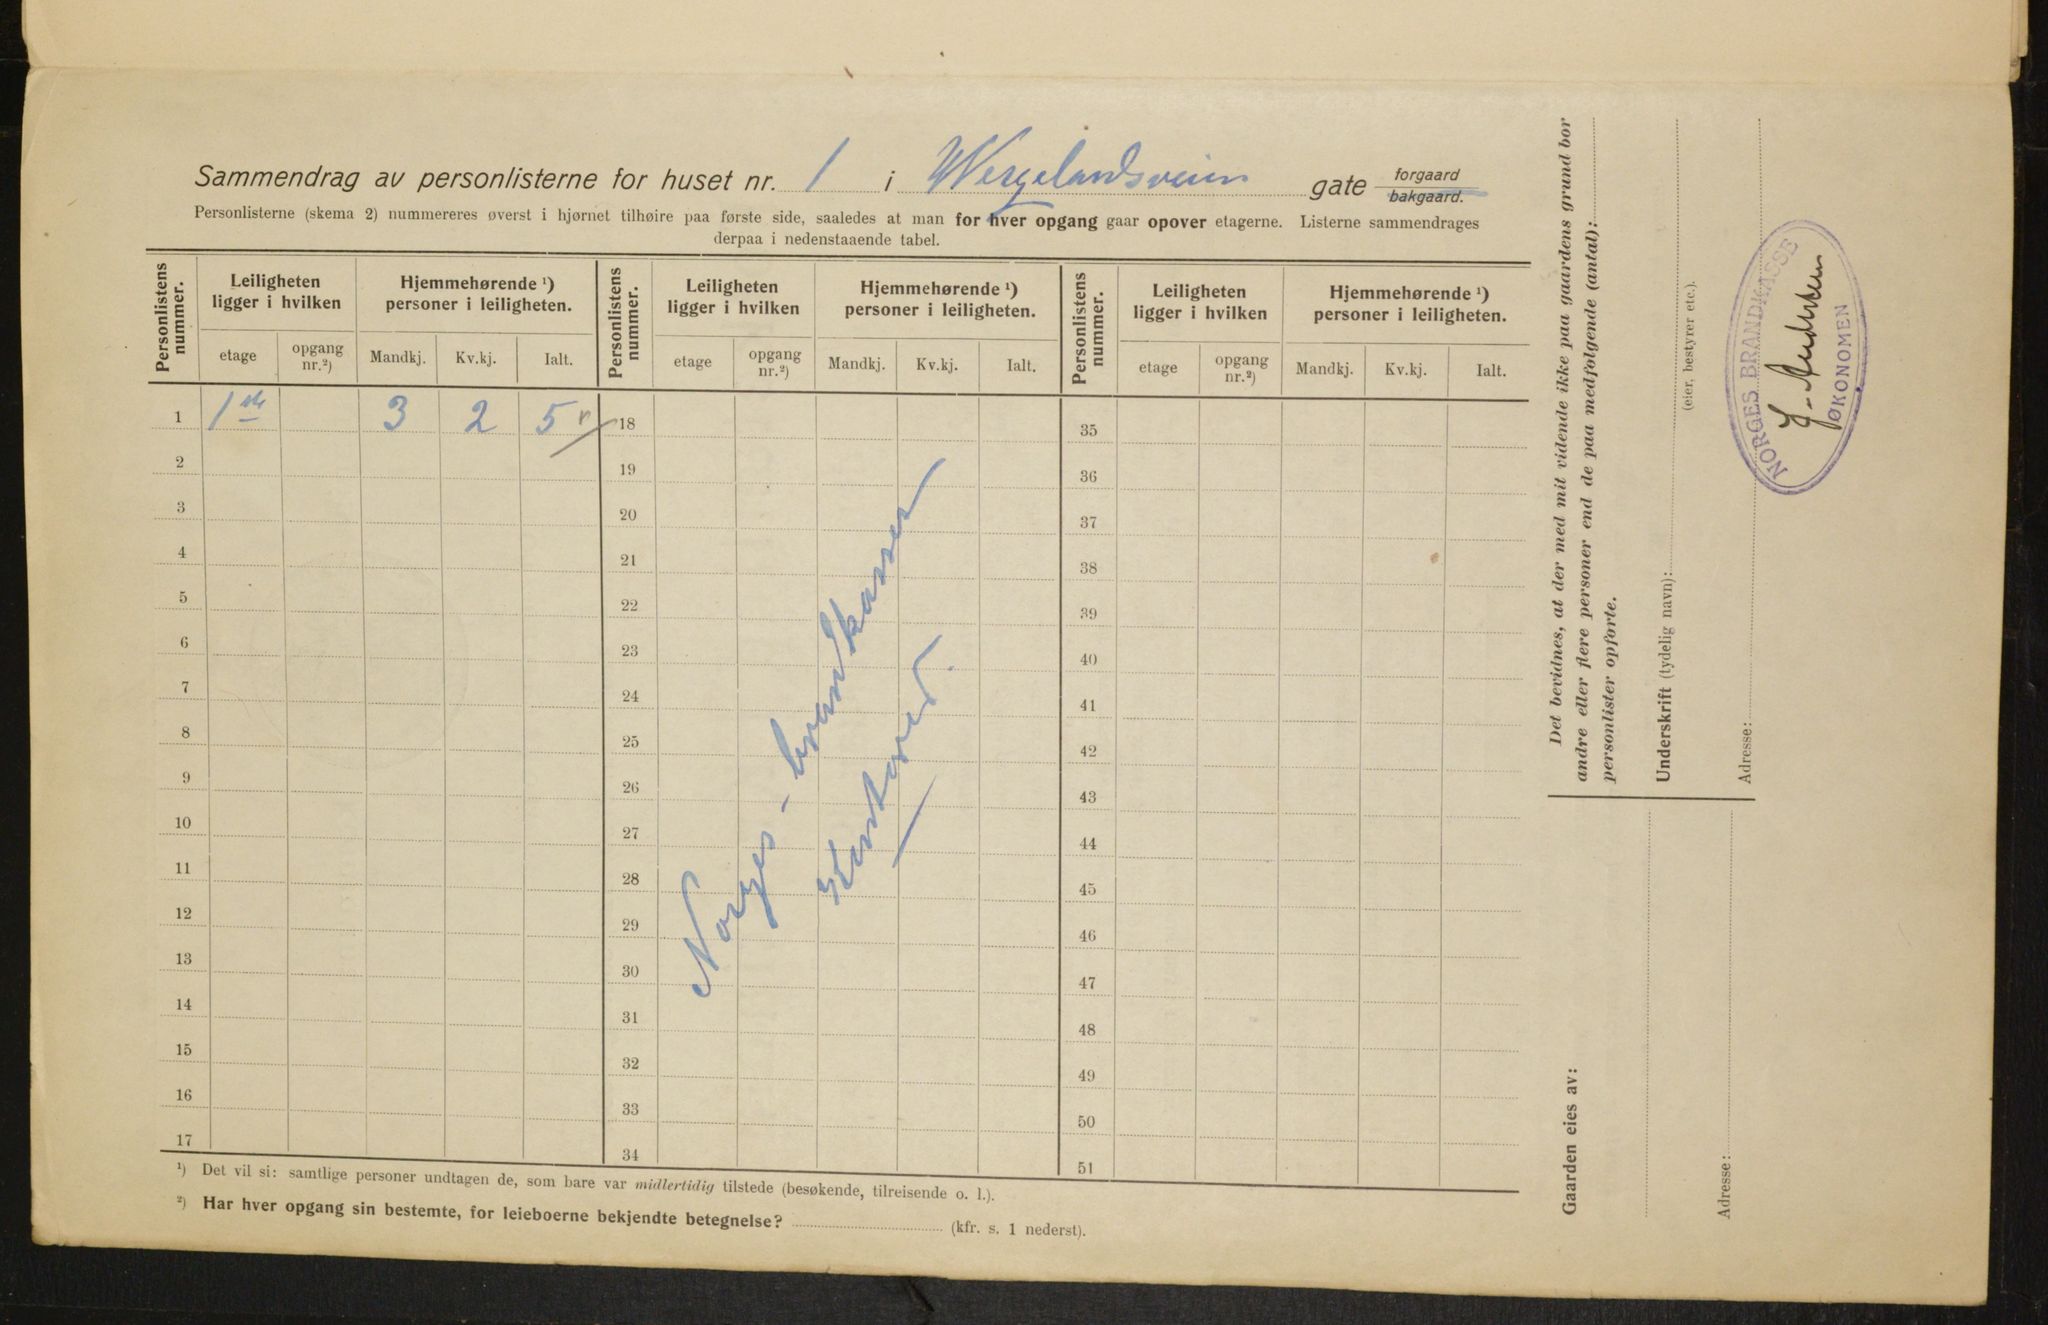 Sammendrag av personlisterne for huset nr. 1 i Wergelandsveien gate forgaard bakgaard.
Personlisterne (skema 2) nummereres øverst i hjørnet tilhøire paa første side, saaledes at man for hver opgang gaar opover etagerne. Listerne sammendrages
derpaa i nedenstaaende tabel.
Personlistens nummer. Leiligheten ligger i hvilken Hjemmehørende ¹) personer i leiligheten. Personlistens nummer. Leiligheten ligger i hvilken Hjemmehørende ¹) personer i leiligheten. Personlistens nummer. Leiligheten ligger i hvilken Hjemmehørende ¹) personer i leiligheten.
etage opgang nr.²) Mandkj. Kv.kj. Ialt. etage opgang nr.²) Mandkj. Kv.kj. Ialt. etage opgang nr.²) Mandkj. Kv.kj. Ialt.
1 1ste 3 2 5 18 35
2 19 36
3 20 37
4 21 38
5 22 39
6 23 40
7 24 41
8 25 42
9 26 43
10 27 44
11 28 45
12 29 46
13 30 47
14 31 48
15 32 49
16 33 50
17 34 51
Norges-brandkasse
¹) Det vil si: samtlige personer undtagen de, som bare var midlertidig tilstede (besøkende, tilreisende o. l.).
²) Har hver opgang sin bestemte, for leieboerne bekjendte betegnelse? (kfr. s. 1 nederst).
Det bevidnes, at der med mit vidende ikke paa gaardens grund bor
andre eller flere personer end de paa medfølgende (antal):
personlister opførte.
Underskrift (tydelig navn):
(eier, bestyrer etc.).
Adresse:
NORGES BRANDKASSE
ØKONOMEN
Gaarden eies av:
Adresse: